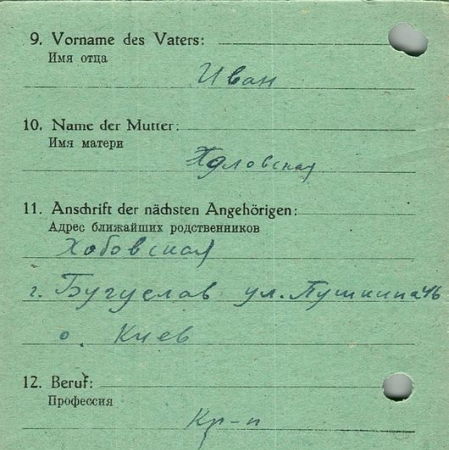 9. Vorname des Vaters:
Имя отца
Иван
10. Name der Mutter:
Имя матери
Хлловская
11. Anschrift der nächsten Angehörigen:
Адрес ближайших родственников
Хобовская
г. Бугуслав ул. Пушкина 46
о. Киев
12. Beruf:
Профессия
Кр-н